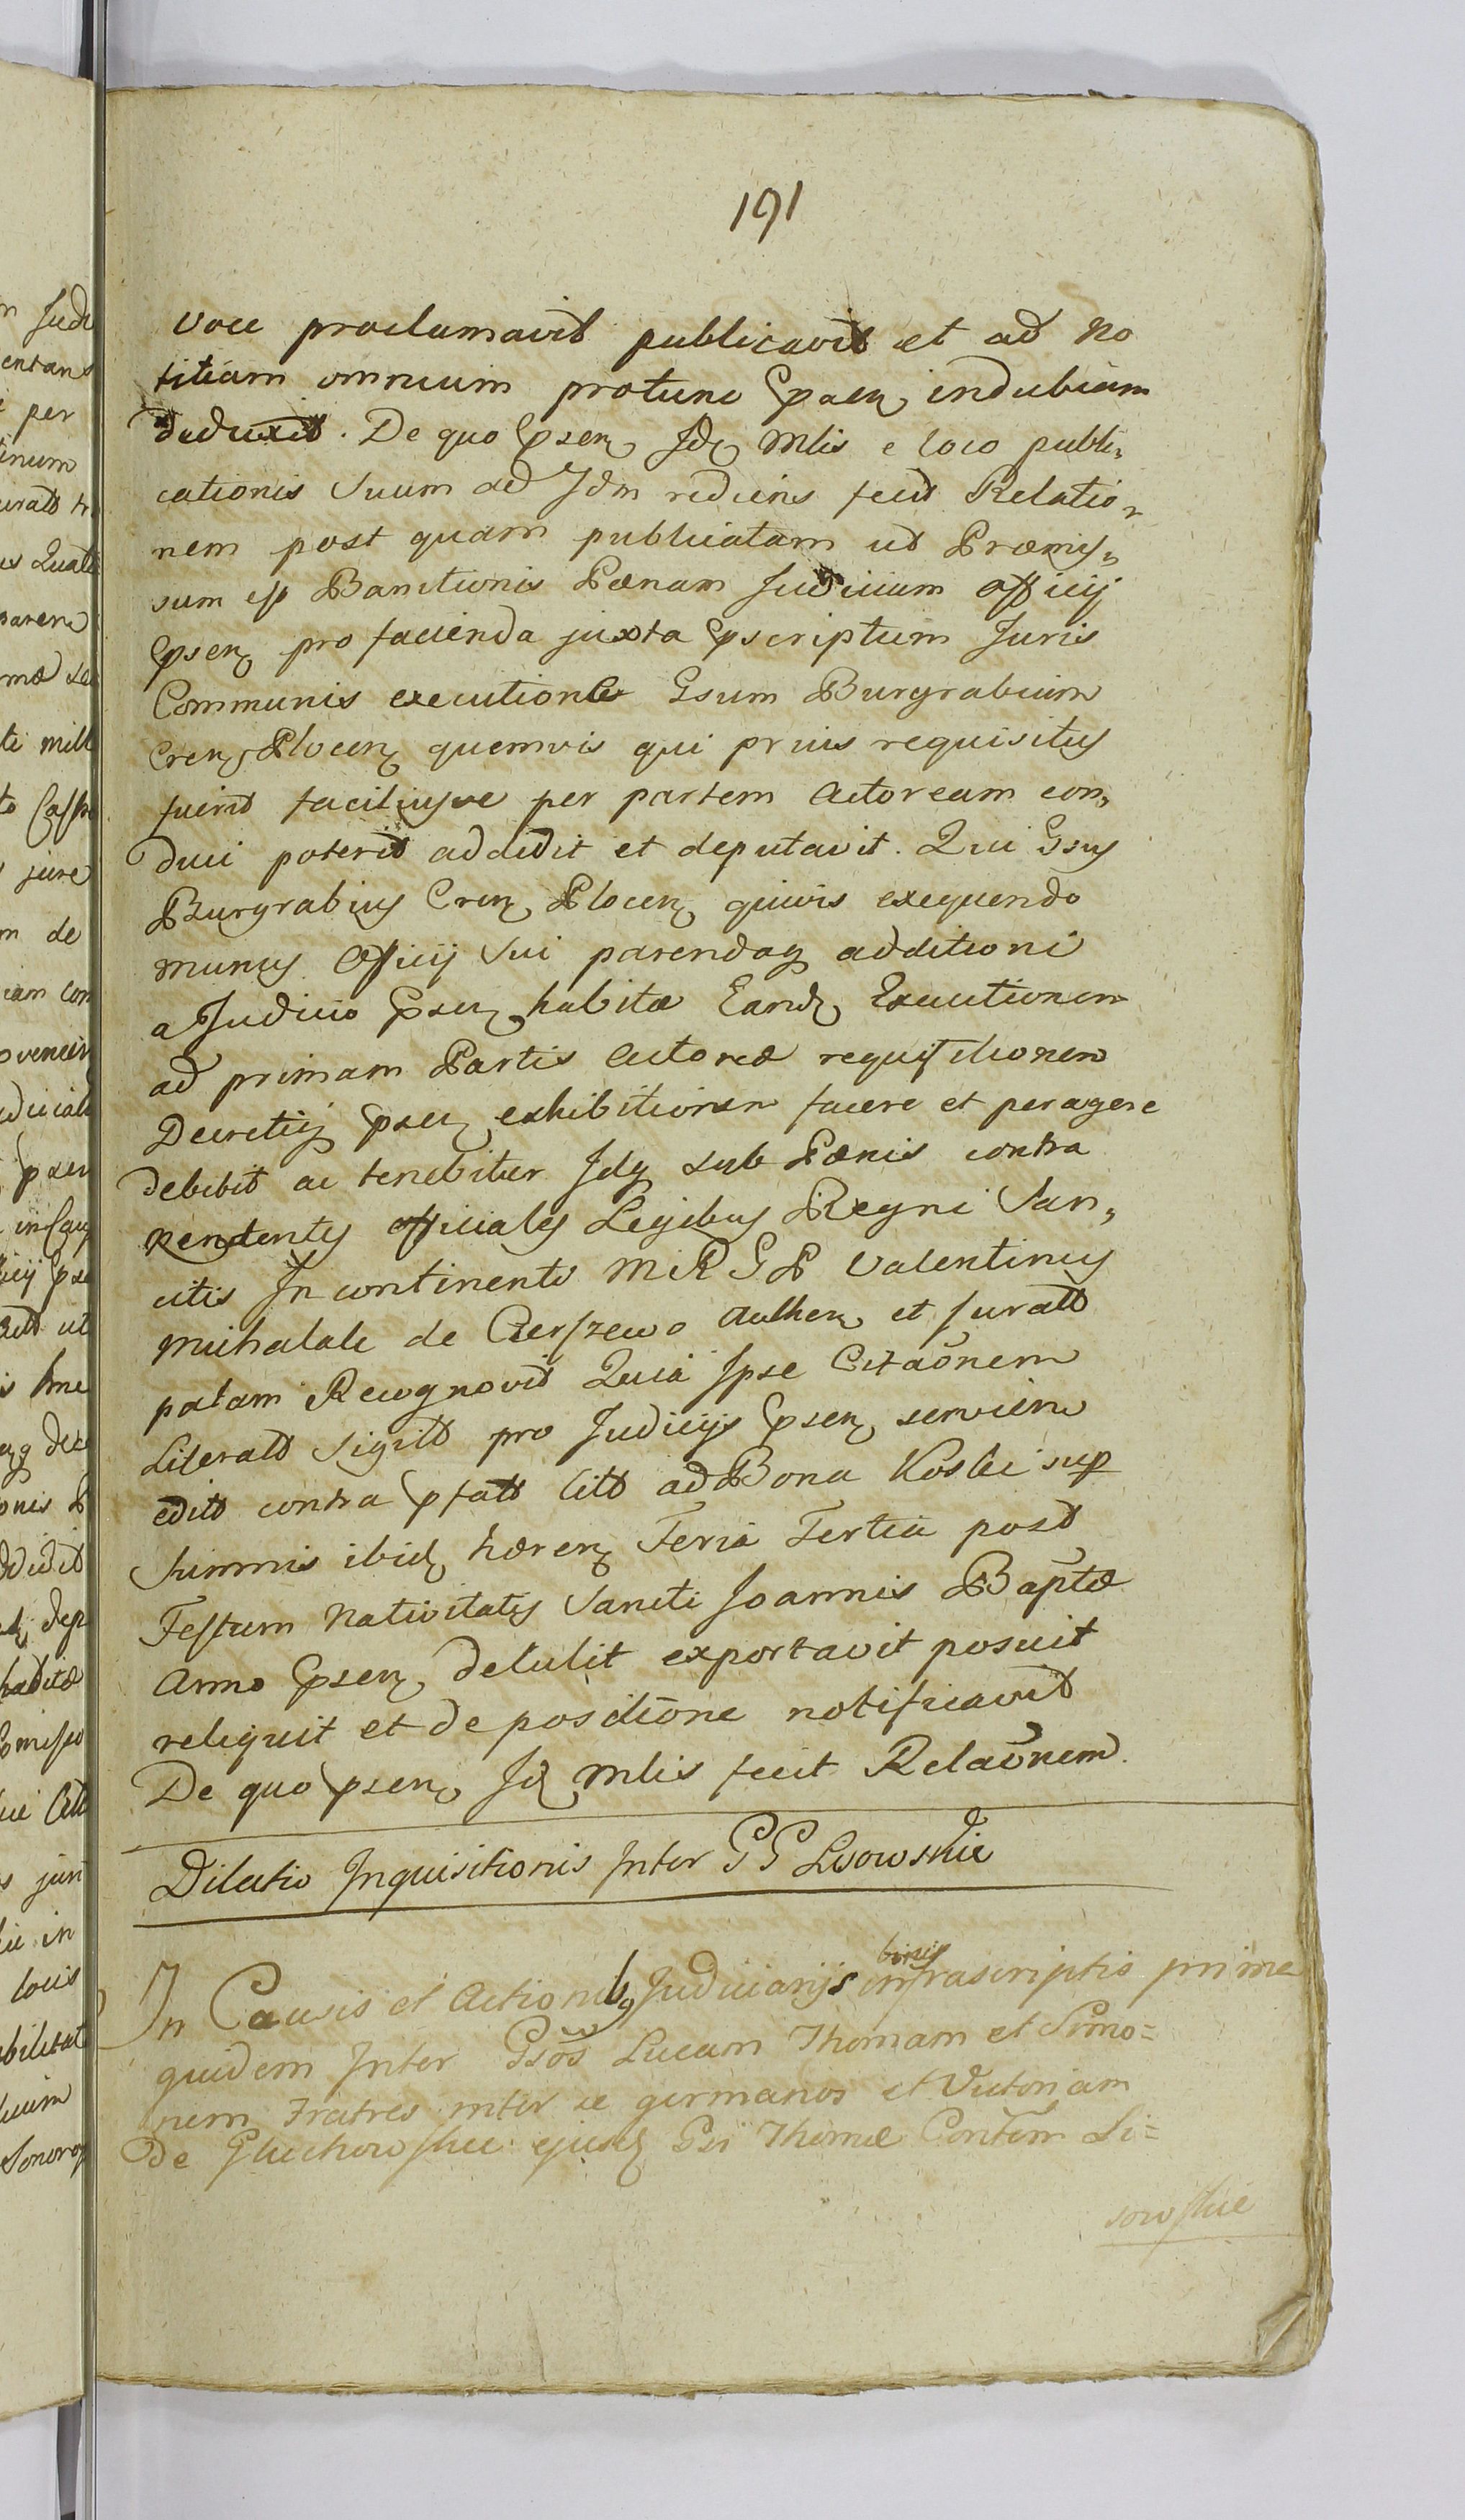 191
voce proclamavit publicavit et ad no
titiam omnium protunc pñen indubiam
deduxit. De quo psen Id Mlis e loco publi„
cationis suum ad Idm rediens fecit Relatio„
nem post quam publicatam ut Præmis„
sum est Banitionis Pænam Judicium Officij
psen pro facienda juxta pscriptum Juris
Communis executione Gsum Burgrabium
Cren Plocen quemvis qui prius requisitus
fuerit faciliusve per partem Actoream con„
duci poterit addidit et deputavit. Qui Gsus
Burgrabius Cren Plocen quivis exequendo
munus Officij Sui parendoq additioni
a Judicio psen habitæ Eand Executionem
ad primam Partis Actoreæ requisitionem
Decretiq psen exhibitionem facere et peragere
debebit ac tenebitur Idq sub Pænis contra
renitentes officiales Legibus Regni San„
citis In continenti M R G P Valentinus
Michalak de Cierszewo Authen et Juratt
palam Recognovit Quia Ipse Citaõnem
Literatt Sigitt pro Judicijs psen servien
editt contra pfatt Citt ad Bona Koski sup
Summis ibid hæren Feria Tertia post
Festum Nativitatis Sancti Joannis Baptæ
Anno psen detulit exportavit posuit
reliquit et de positione notificavit
De quo psen Id Mlis fecit Relaõnem.
Dilatio Inquisitionis Inter GG Lisowskie
In Causis et Actionibq Judiciarijs binis infrascriptis prima
quidem Inter Gsõs Lucam Thomam et Simo=
nem Fratres inter se germanos et Victoriam
De Gluchowskie ejusd Gsi Thomæ Contem Li=
sowskie